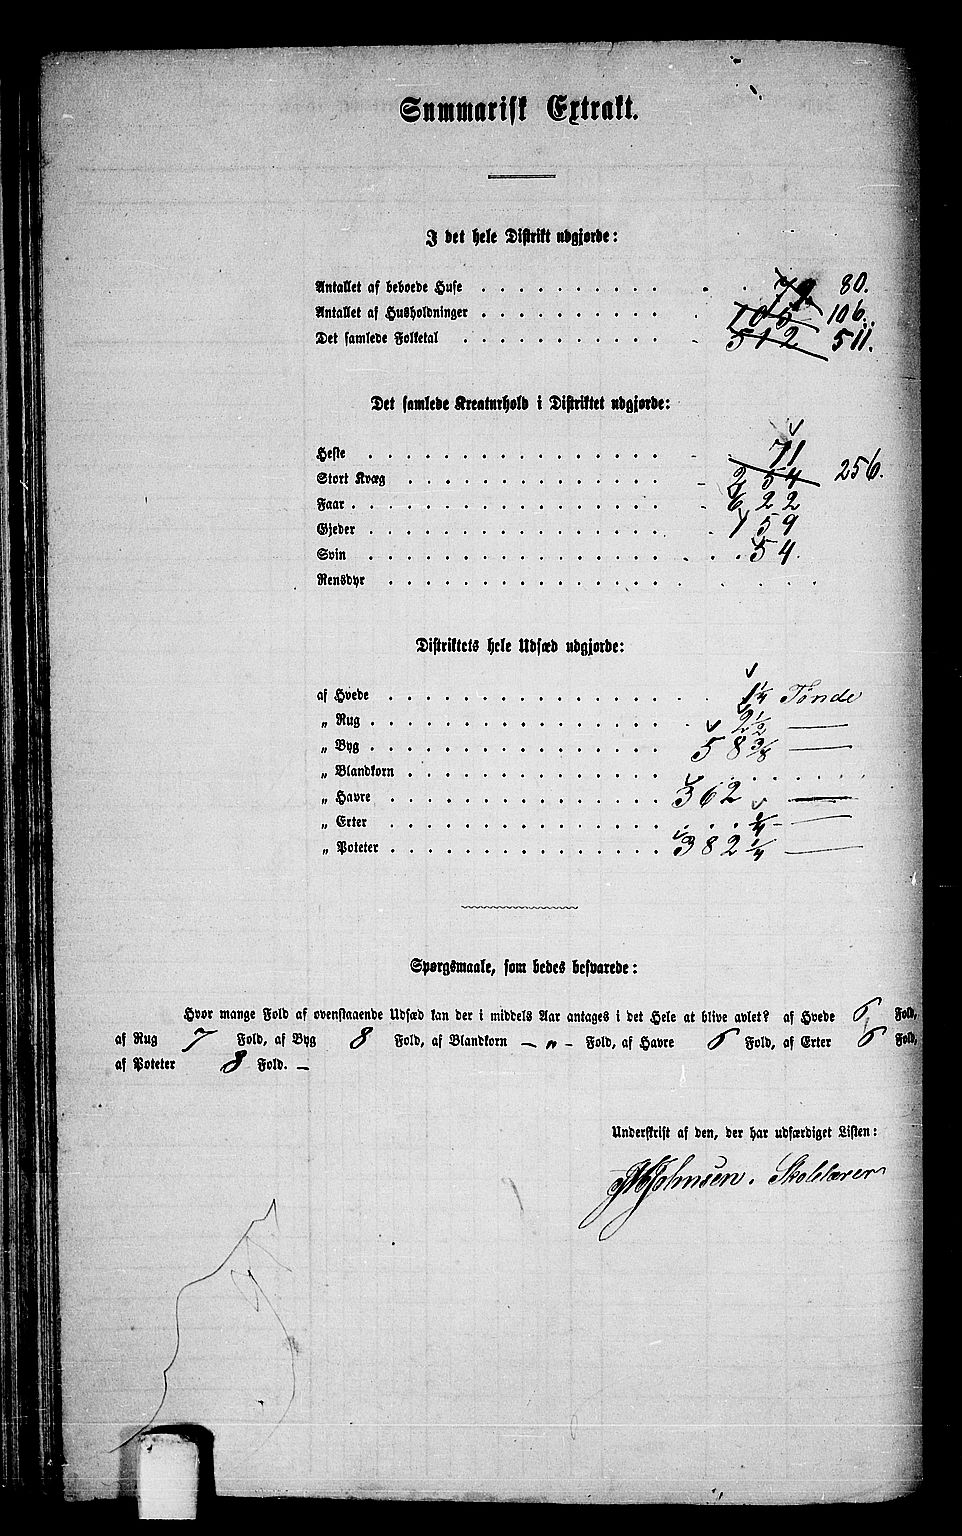 Summarisk Extrakt.
I det hele Distrikt udgjorde:
Antallet af beboede Huse . . . . . . . . . . 79 80.
Antallet af Husholdninger . . . . . . . . . . 105 106.
Det samlede Folketal . . . . . . . . . . 512 511.
Det samlede Kreaturhold i Distriktet udgjorde:
Heste . . . . . . . . . . 71
Stort Kvæg . . . . . . . . . . 254 256.
Faar . . . . . . . . . . 622
Gjeder . . . . . . . . . . 159
Svin . . . . . . . . . . 54.
Rensdyr . . . . . . . . . .
Distriktets hele Udsæd udgjorde:
af Hvede . . . . . . . . . . 1 1/4 Tønde
„ Rug . . . . . . . . . . 2 1/2 —
„ Byg . . . . . . . . . . 58 3/8 —
„ Blandkorn . . . . . . . . . .
„ Havre . . . . . . . . . . 362 —
„ Erter . . . . . . . . . . 1/4 —
„ Poteter . . . . . . . . . . 382 1/4 —
Spørgsmaale, som bedes besvarede:
Hvor mange Fold af ovenstaaende Udsæd kan der i middels Aar antages i det Hele at blive avlet? af Hvede 6 Fold,
af Rug 7 Fold, af Byg 8 Fold, af Blandkorn — „ — Fold, af Havre 6 Fold, af Erter 6 Fold,
af Poteter 8 Fold. —
Underskrift af den, der har udfærdiget Listen:
Johnsen. Skolelærer